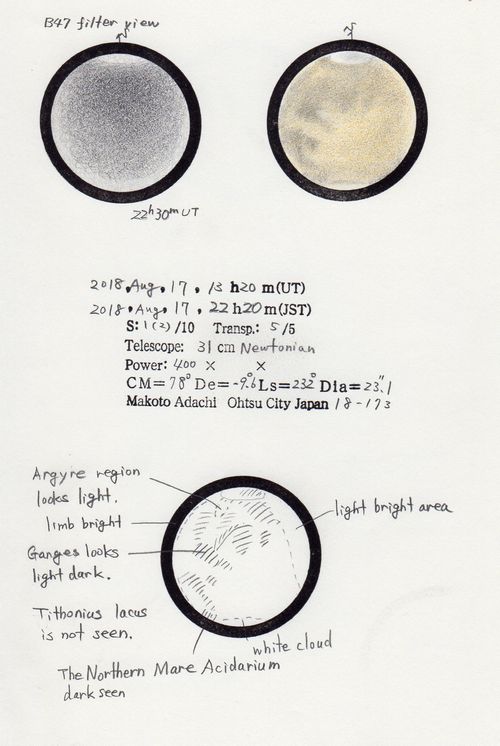 B47 filter view
22h30m UT
2018, Aug, 17, 13 h20 m(UT)
2018, Aug, 17, 22 h20 m(JST)
S: 1(2) /10 Transp.: 5 /5
Telescope: 31 cm Newtonian
Power: 400 × ×
CM= 78° De= -9.6 Ls= 232° Dia= 23".1
Makoto Adachi Ohtsu City Japan 18-173
Argyre region
looks light.
limb bright
Ganges looks
light dark.
Tithonius lacus
is not seen.
light bright area
white cloud
The Northern Mare Acidarium
dark seen